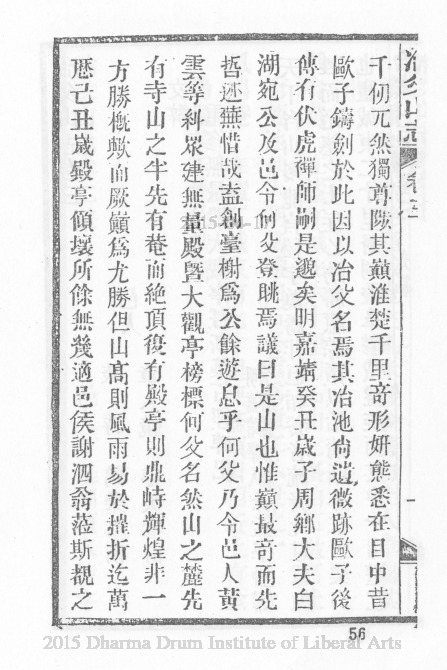 冶父山志 卷之
千仞亢然獨尊陟其巔淮楚千里奇形妍態悉在目中昔
歐子鑄劍於此因以冶父名焉其冶池尙遺微跡歐子後
傳有伏虎禪師嗣是邈矣明嘉靖癸丑歲子周鄉大夫白
湖宛公及邑令何父登眺焉議曰是山也惟巔最奇而先
哲迹蕪惜哉盍創臺榭爲公餘遊息乎何父乃令邑人黃
雲等糾眾建無量殿曁大觀亭榜標何父名然山之麓先
有寺山之半先有菴而絕頂復有殿亭則鼎峙輝煌非一
方勝槪歟而厥巔爲尤勝但山高則風雨易於摧折迄萬
歷己丑歲毀亭傾壞所餘無幾適邑侯謝泗翁蒞斯覩之
56
2015 Dharma Drum Institute of Liberal Arts